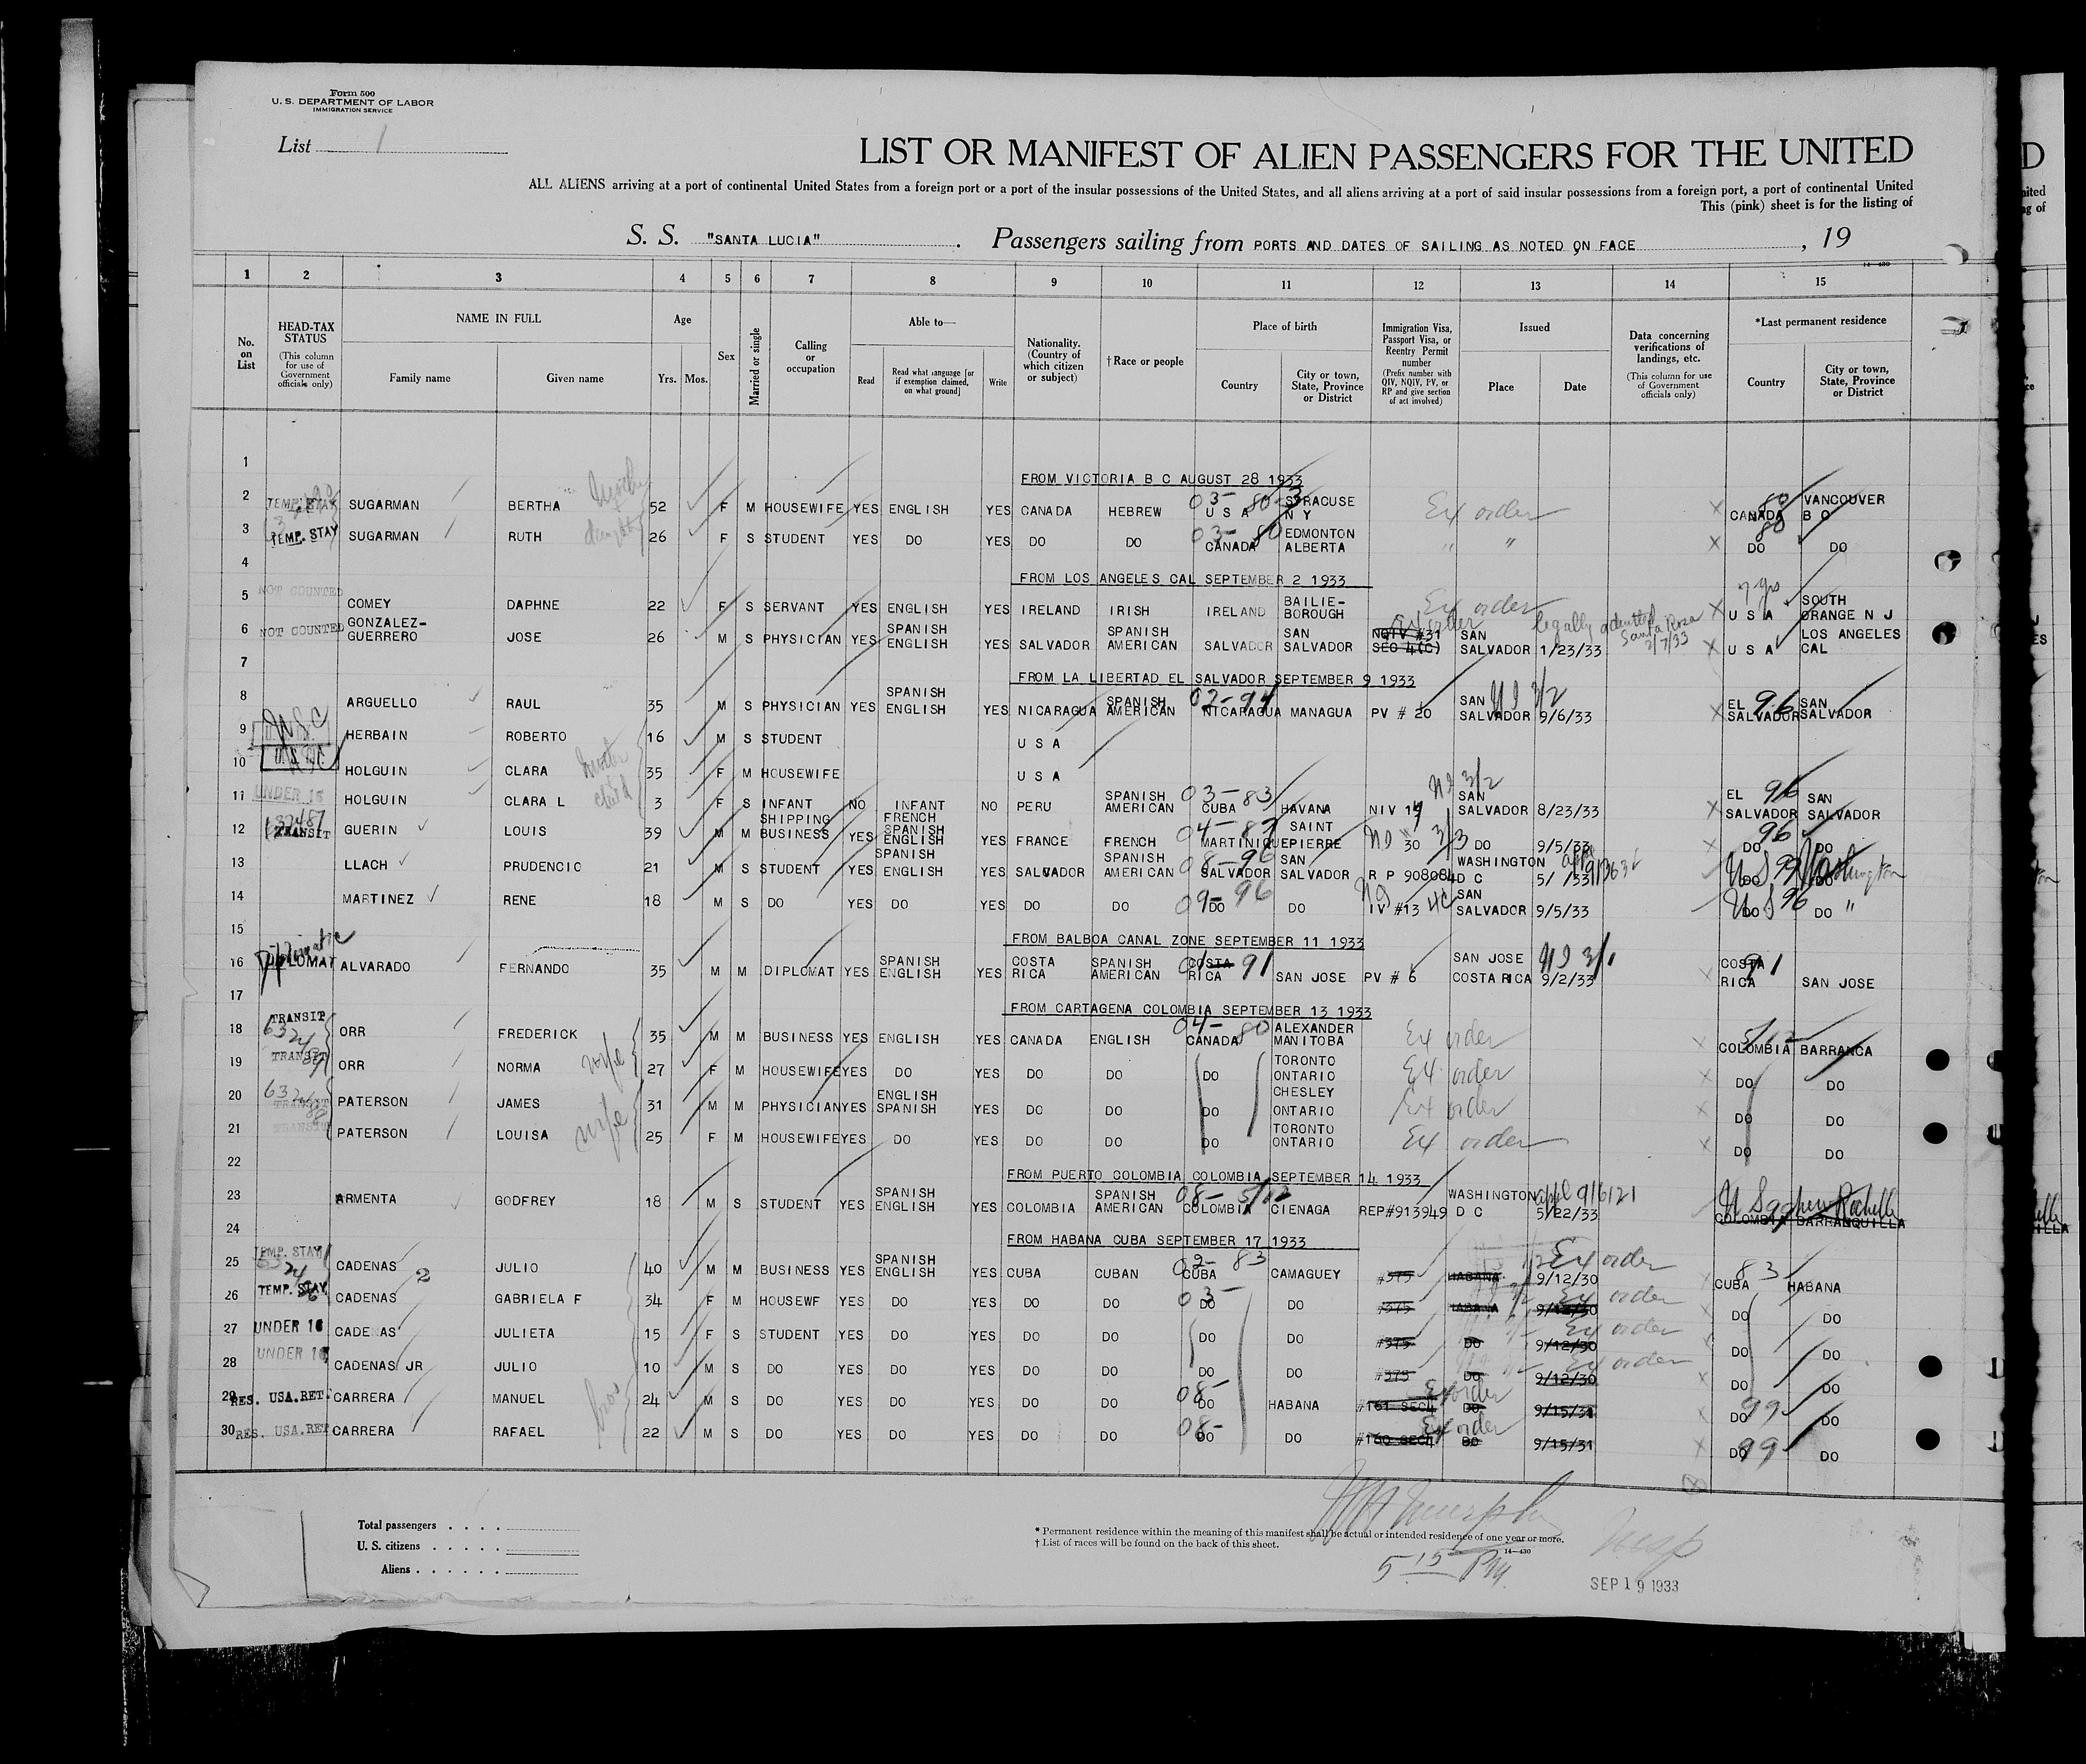 Form 500
U. S. DEPARTMENT OF LABOR
IMMIGRATION SERVICE
List 1
LIST OR MANIFEST OF ALIEN PASSENGERS FOR THE UNITED
ALL ALIENS arriving at a port of continental United States from a foreign port or a port of the insular possessions of the United States, and all aliens arriving at a port of said insular possessions from a foreign port, a port of continental United
This (pink) sheet is for the listing of
S. S. "SANTA LUCIA" . Passengers sailing from PORTS AND DATES OF SAILING AS NOTED ON FACE , 19
14-430
1 2 3 4 5 6 7 8 9 10 11 12 13 14 15
No. on List
HEAD-TAX STATUS (This column for use of Government officials only)
NAME IN FULL
Family name Given name
Age
Yrs. Mos.
Sex
Married or single
Calling or occupation
Able to—
Read Read what language [or if exemption claimed, on what ground] Write
Nationality. (Country of which citizen or subject)
†Race or people
Place of birth
Country City or town, State, Province or District
Immigration Visa, Passport Visa, or Reentry Permit number (Prefix number with QIV, NQIV, PV, or RP and give section of act involved)
Issued
Place Date
Data concerning verifications of landings, etc. (This column for use of Government officials only)
*Last permanent residence
Country City or town, State, Province or District
1
FROM VICTORIA B C AUGUST 28 1933
2 TEMP. STAY SUGARMAN BERTHA 52 F M HOUSEWIFE YES ENGLISH YES CANADA HEBREW 03- 80-3 U S A SYRACUSE N Y Ex order 80 CANADA VANCOUVER B C
3 TEMP. STAY SUGARMAN RUTH daughter 26 F S STUDENT YES DO YES DO DO 03- 80 CANADA EDMONTON ALBERTA " " 80 DO DO
4
FROM LOS ANGELES CAL SEPTEMBER 2 1933
5 NOT COUNTED COMEY DAPHNE 22 F S SERVANT YES ENGLISH YES IRELAND IRISH IRELAND BAILIE-BOROUGH Ex order 7 yrs U S A SOUTH ORANGE N J
6 NOT COUNTED GONZALEZ-GUERRERO JOSE 26 M S PHYSICIAN YES SPANISH ENGLISH YES SALVADOR SPANISH AMERICAN SALVADOR SAN SALVADOR Ex order NQIV #31 SEC 4(C) SAN SALVADOR 1/23/33 legally admitted Santa Rosa 2/7/33 U S A LOS ANGELES CAL
7
FROM LA LIBERTAD EL SALVADOR SEPTEMBER 9 1933
8 ARGUELLO RAUL 35 M S PHYSICIAN YES SPANISH ENGLISH YES NICARAGUA SPANISH AMERICAN 02-94 NICARAGUA MANAGUA PV # 20 SAN SALVADOR 3/2 9/6/33 EL SALVADOR 96 SAN SALVADOR
9 USC HERBAIN ROBERTO 16 M S STUDENT U S A
10 USC HOLGUIN CLARA 35 F M HOUSEWIFE U S A
11 UNDER 16 HOLGUIN CLARA L child 3 F S INFANT NO INFANT NO PERU SPANISH AMERICAN 03-83 CUBA HAVANA NIV 19 3/2 SAN SALVADOR 8/23/33 EL SALVADOR 96 SAN SALVADOR
12 TRANSIT GUERIN LOUIS 39 M M SHIPPING BUSINESS YES FRENCH SPANISH ENGLISH YES FRANCE FRENCH 04-87 MARTINIQUE SAINT PIERRE 30 3/3 DO 9/5/33 96 DO DO
13 LLACH PRUDENCIO 21 M S STUDENT YES SPANISH ENGLISH YES SALVADOR SPANISH AMERICAN 08-96 SALVADOR SAN SALVADOR R P 908084 WASHINGTON D C 5/ /33 US 99 DO Washington DO
14 MARTINEZ RENE 18 M S DO YES DO YES DO DO 09-96 DO DO IV #13 4C SAN SALVADOR 9/5/33 US 96 DO DO "
15
FROM BALBOA CANAL ZONE SEPTEMBER 11 1933
16 Diplomatic DIPLOMAT ALVARADO FERNANDO 35 M M DIPLOMAT YES SPANISH ENGLISH YES COSTA RICA SPANISH AMERICAN COSTA RICA 91 SAN JOSE PV # 6 SAN JOSE COSTA RICA 3/1 9/2/33 COSTA RICA 91 SAN JOSE
17
FROM CARTAGENA COLOMBIA SEPTEMBER 13 1933
18 TRANSIT ORR FREDERICK 35 M M BUSINESS YES ENGLISH YES CANADA ENGLISH 04-80 CANADA ALEXANDER MANITOBA Ex order 5/12 COLOMBIA BARRANCA
19 TRANSIT ORR NORMA wife 27 F M HOUSEWIFE YES DO YES DO DO DO TORONTO ONTARIO Ex order DO DO
20 TRANSIT PATERSON JAMES 31 M M PHYSICIAN YES ENGLISH SPANISH YES DO DO DO CHESLEY ONTARIO Ex order DO DO
21 TRANSIT PATERSON LOUISA wife 25 F M HOUSEWIFE YES DO YES DO DO DO TORONTO ONTARIO Ex order DO DO
22
FROM PUERTO COLOMBIA COLOMBIA SEPTEMBER 14 1933
23 ARMENTA GODFREY 18 M S STUDENT YES SPANISH ENGLISH YES COLOMBIA SPANISH AMERICAN 08-5/12 COLOMBIA CIENAGA REP#913949 WASHINGTON D C appl 916121 5/22/33 US 99 New Rochelle COLOMBIA BARRANQUILLA
24
FROM HABANA CUBA SEPTEMBER 17 1933
25 TEMP. STAY CADENAS 2 JULIO 40 M M BUSINESS YES SPANISH ENGLISH YES CUBA CUBAN 02-83 CUBA CAMAGUEY #375 HABANA 9/12/30 Ex order 83 CUBA HABANA
26 TEMP. STAY CADENAS GABRIELA F 34 F M HOUSEWF YES DO YES DO DO 03- DO DO #375 HABANA 9/12/30 Ex order DO DO
27 UNDER 16 CADENAS JULIETA 15 F S STUDENT YES DO YES DO DO DO DO #375 DO 9/12/30 Ex order DO DO
28 UNDER 16 CADENAS JR JULIO 10 M S DO YES DO YES DO DO DO DO #375 DO 9/12/30 Ex order DO DO
29 RES. USA. RET. CARRERA MANUEL 24 M S DO YES DO YES DO DO 08- DO HABANA #161 SEC4 Ex order DO 9/15/31 99 DO DO
30 RES. USA. RET CARRERA RAFAEL bros 22 M S DO YES DO YES DO DO 08- DO DO #160 SEC4 Ex order DO 9/15/31 99 DO DO
Total passengers
U. S. citizens
Aliens
* Permanent residence within the meaning of this manifest shall be actual or intended residence of one year or more.
† List of races will be found on the back of this sheet.
14-430
Murphy
5 15 PM.
SEP 19 1933